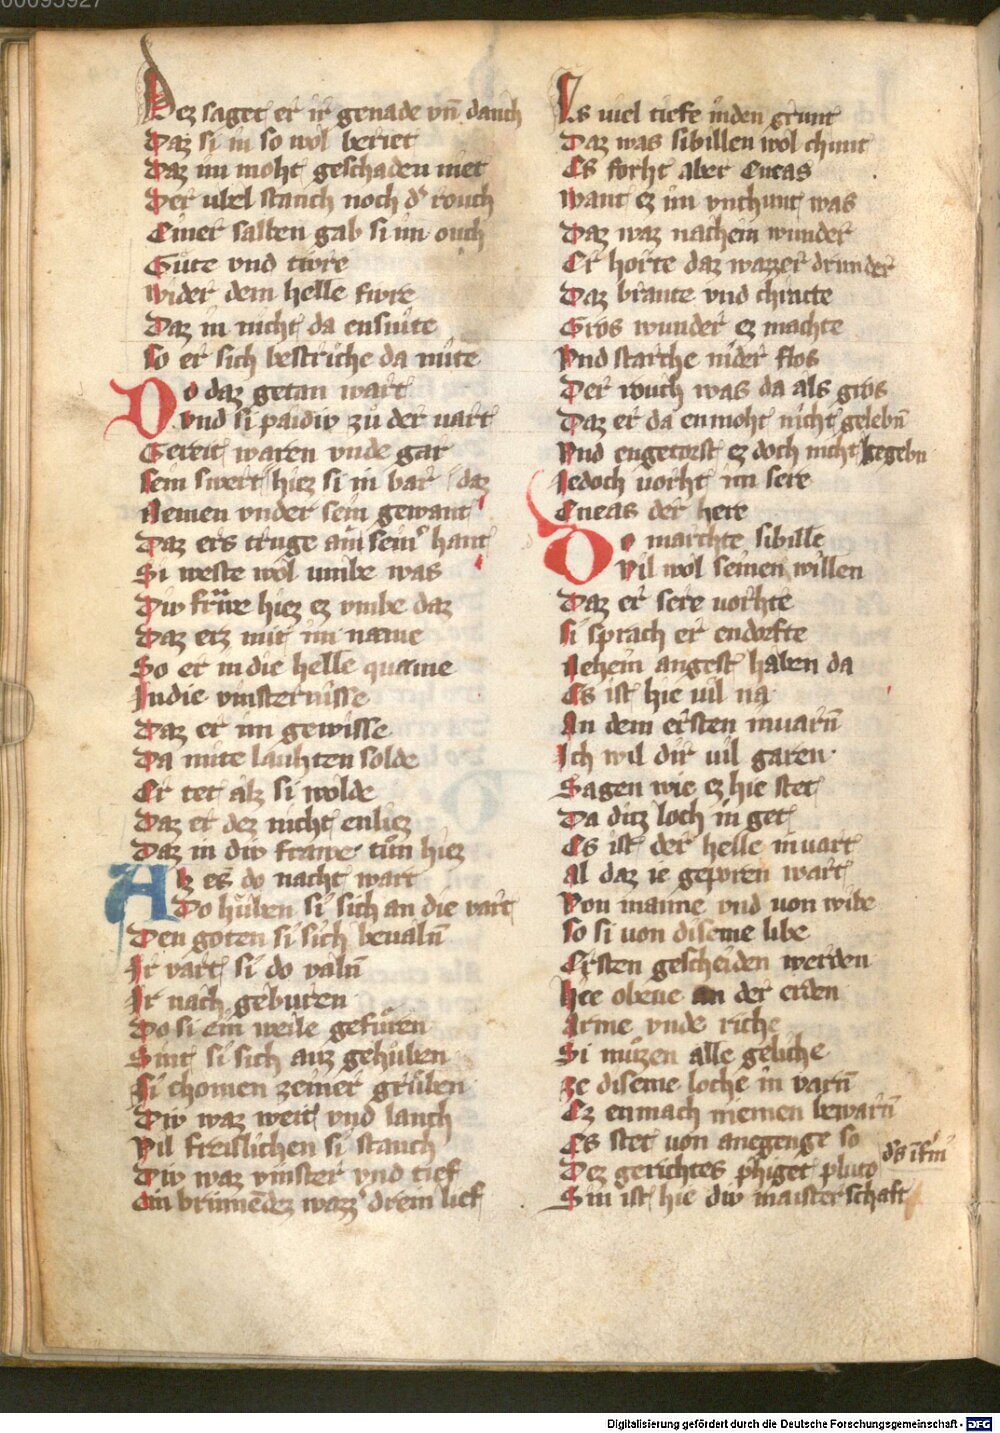 00095927
Dez saget er ir genade vn̄ danch
Daz si in so wol beriet
Daz im moht geschaden niet
Der ubel stanch noch d' rouch
Einer salben gab si im ouch
Gůte vnd tiwre
Wider dem helle fiwre
Daz in nicht da ensuite
So er sich bestriche da mite
Do daz getan wart
vnd si paidiv zů der uart
Gereit waren vnde gar
Sein swert hiez si in bar daz
Nemen vnder sein gewant
Daz ers truge an sein' hant
Si weste wol umbe was
Div frůwe hiez ez vmbe daz
Daz erz mit im name
So er in die helle quame
In die vinsternisse
Daz er im gewisse
Da mite lauhten solde
Er tet alz si wolde
Daz er dez nicht enliez
Daz in div frawe tůn hiez
Alz es do nacht wart
Do hůben si sich an die vart
Den goten si sich beualn̄
Ir vart si do valn̄
Ir nach geburen
Do si ein weile gefůren
Sint si sich auz gehůben
Si chomen zeiner grůben
Div waz weit vnd lanch
Vil freislichen si stanch
Div waz vinster vnd tief
Ein brinnēdez wazz' drein lief
Es viel tiefe inden grunt
Daz was sibillen wol chunt
Es forht aber Eneas
Want ez im vnchunt was
Daz waz nachein wunder
Er horte daz wazzer drunder
Daz brante vnd chincte
Gros wunder ez machte
Vnd starche nider flos
Der rouch was da als gros
Daz er da enmoht nicht gelebn̄
Vnd engetorst ez doch nicht begebn
Iedoch uorht im sere
Eneas der here
Do marchte sibille
Vil wol seinen willen
Daz er sere uorhte
Si sprach er endorfte
Nehein angest haben da
Es ist hie uil na
An dem ersten inuarn̄
Ich wil dir uil garen
Sagen wie ez hie stet
Da ditz loch in get
Es ist der helle inuart
Al daz ie geporen wart
Von manne vnd von wibe
So si von diseme libe
Ersten gescheiden werden
Hie obene an der erden
Arme vnde riche
Si můzen alle geliche
Ze diseme loche in varn̄
Ez enmach niemen bewarn̄
Es stet von anegenge so
Dez gerichtes phliget pluto
Sin ist hie div maisterschaft
Digitalisierung gefördert durch die Deutsche Forschungsgemeinschaft - DFG